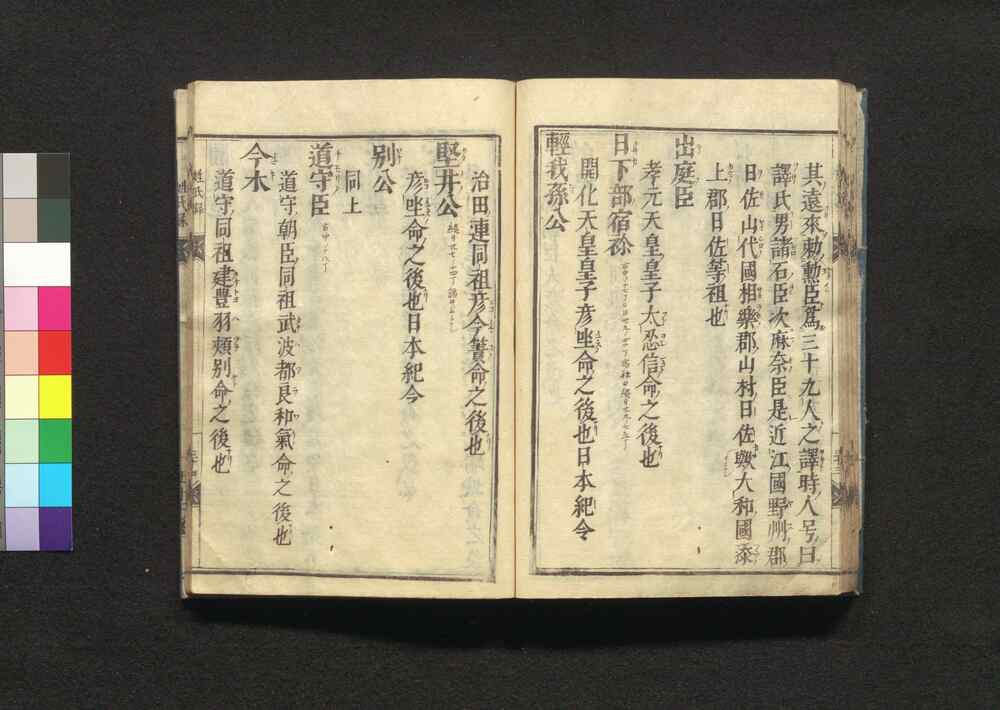 其遠來勅勲臣為三十九人之譯時人号曰
譯氏男諸石臣次麻奈臣是近江國野州郡
日佐山代國相樂郡山村日佐大和國添
上郡日佐等祖也
出庭臣
孝元天皇皇子太忍信命之後也
日下部宿祢
開化天皇皇子彦坐命之後也日本紀合
輕我孫公
治田連同祖彦今簀命之後也
堅井公
彦坐命之後也日本紀合
別公
同上
道守臣
道守朝臣同祖武波都良和氣命之後也
今木
道守同祖建豊羽頬別命之後也
姓氏録